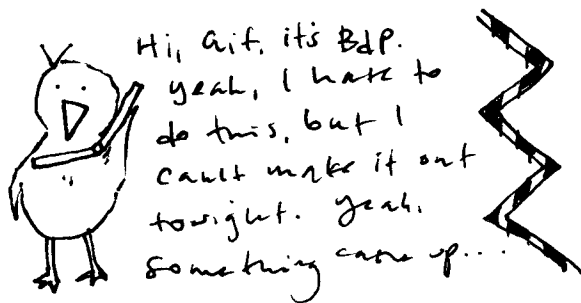 Hi, Gif, it's BdP.
yeah, I hate to
do this, but I
can't make it out
tonight. yeah,
something came up...